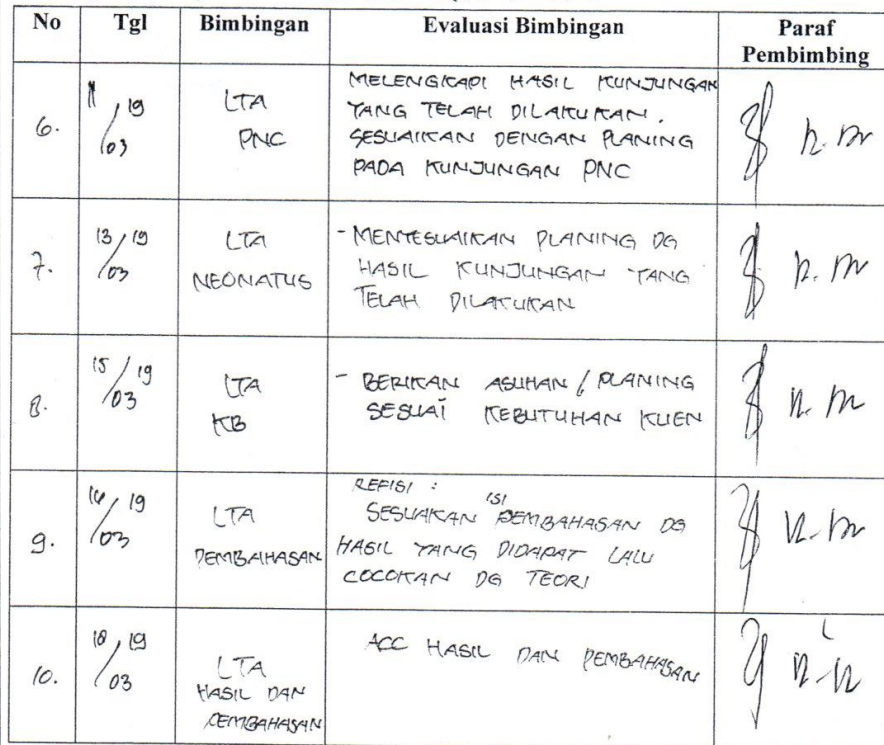 No Tgl Bimbingan Evaluasi Bimbingan Paraf
Pembimbing
6. 11/03 19 LTA PNC
MELENGKAPI HASIL KUNJUNGAN
YANG TELAH DILAKUKAN.
SESUAIKAN DENGAN PLANING
PADA KUNJUNGAN PNC
7. 13/03 19 LTA NEONATUS
- MENYESUAIKAN PLANING DG
HASIL KUNJUNGAN YANG
TELAH DILAKUKAN
8. 15/03 19 LTA KB
- BERIKAN ASUHAN / PLANING
SESUAI KEBUTUHAN KLIEN
9. 16/03 19 LTA PEMBAHASAN
REFISI :
SESUAKAN ISI PEMBAHASAN DG
HASIL YANG DIDAPAT LALU
COCOKAN DG TEORI
10. 18/03 19 LTA
HASIL DAN
PEMBAHASAN
ACC HASIL DAN PEMBAHASAN